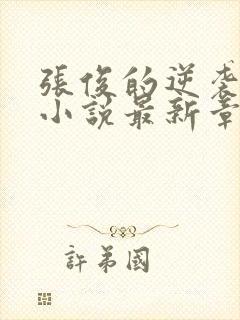 張俊的逆袭
小説最新章
許弟國